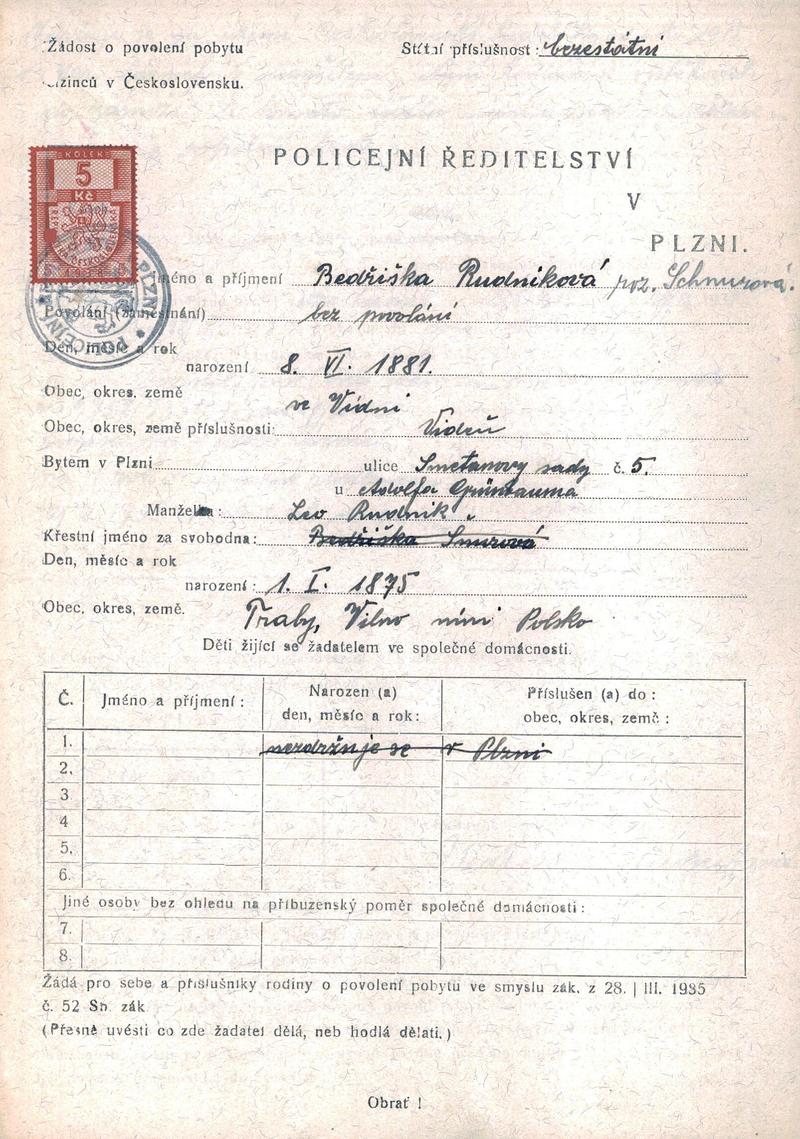 Žádost o povolení pobytu
Státní příslušnost: bezestátní
cizinců v Československu.
KOLEK
5
Kč
POLICEJNÍ ŘEDITELSTVÍ
V
PLZNI.
Jméno a příjmení Bedřiška Rudniková roz. Schnurová.
Povolání (zaměstnání) bez povolání
Den, měsíc a rok
narození 8. VI. 1881.
Obec, okres, země
ve Vídni
Obec, okres, země příslušnosti: Vídeň
Bytem v Plzni ulice Smetanovy sady č. 5.
u Adolfa Grünbauma
Manžel: Leo Rudnik
Křestní jméno za svobodna: Bedřiška Šnurová
Den, měsíc a rok
narození: 1. I. 1875
Obec, okres, země. Traby, Vilno nini Polsko
Děti žijící se žadatelem ve společné domácnosti.
Č. Jméno a příjmení: Narozen (a) den, měsíc a rok: Příslušen (a) do: obec, okres, země:
1. nezdržuje se v Plzni
2.
3.
4
5.
6.
Jiné osoby bez ohledu na příbuzenský poměr společné domácnosti:
7.
8.
Žádá pro sebe a příslušníky rodiny o povolení pobytu ve smyslu zák. z 28. | III. 1935
č. 52 Sb. zák.
(Přesně uvésti co zde žadatel dělá, neb hodlá dělati.)
Obrať !